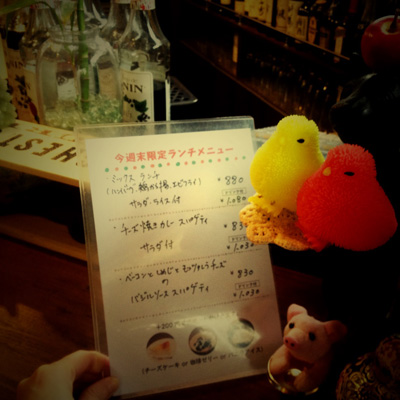 NIN
HEST
今週末限定ランチメニュー
・ミックス ランチ ¥880
(ハンバーグ、鶏から揚、エビフライ)
サラダ・ライス付 ¥1.080
・チーズ焼きカレースパゲティ ¥830
サラダ付 ¥1.030
・ベーコンとしめじとモッツァレラチーズ ¥830
の
バジルソーススパゲティ ¥1.030
+200
(チーズケーキ or 珈琲ゼリー or